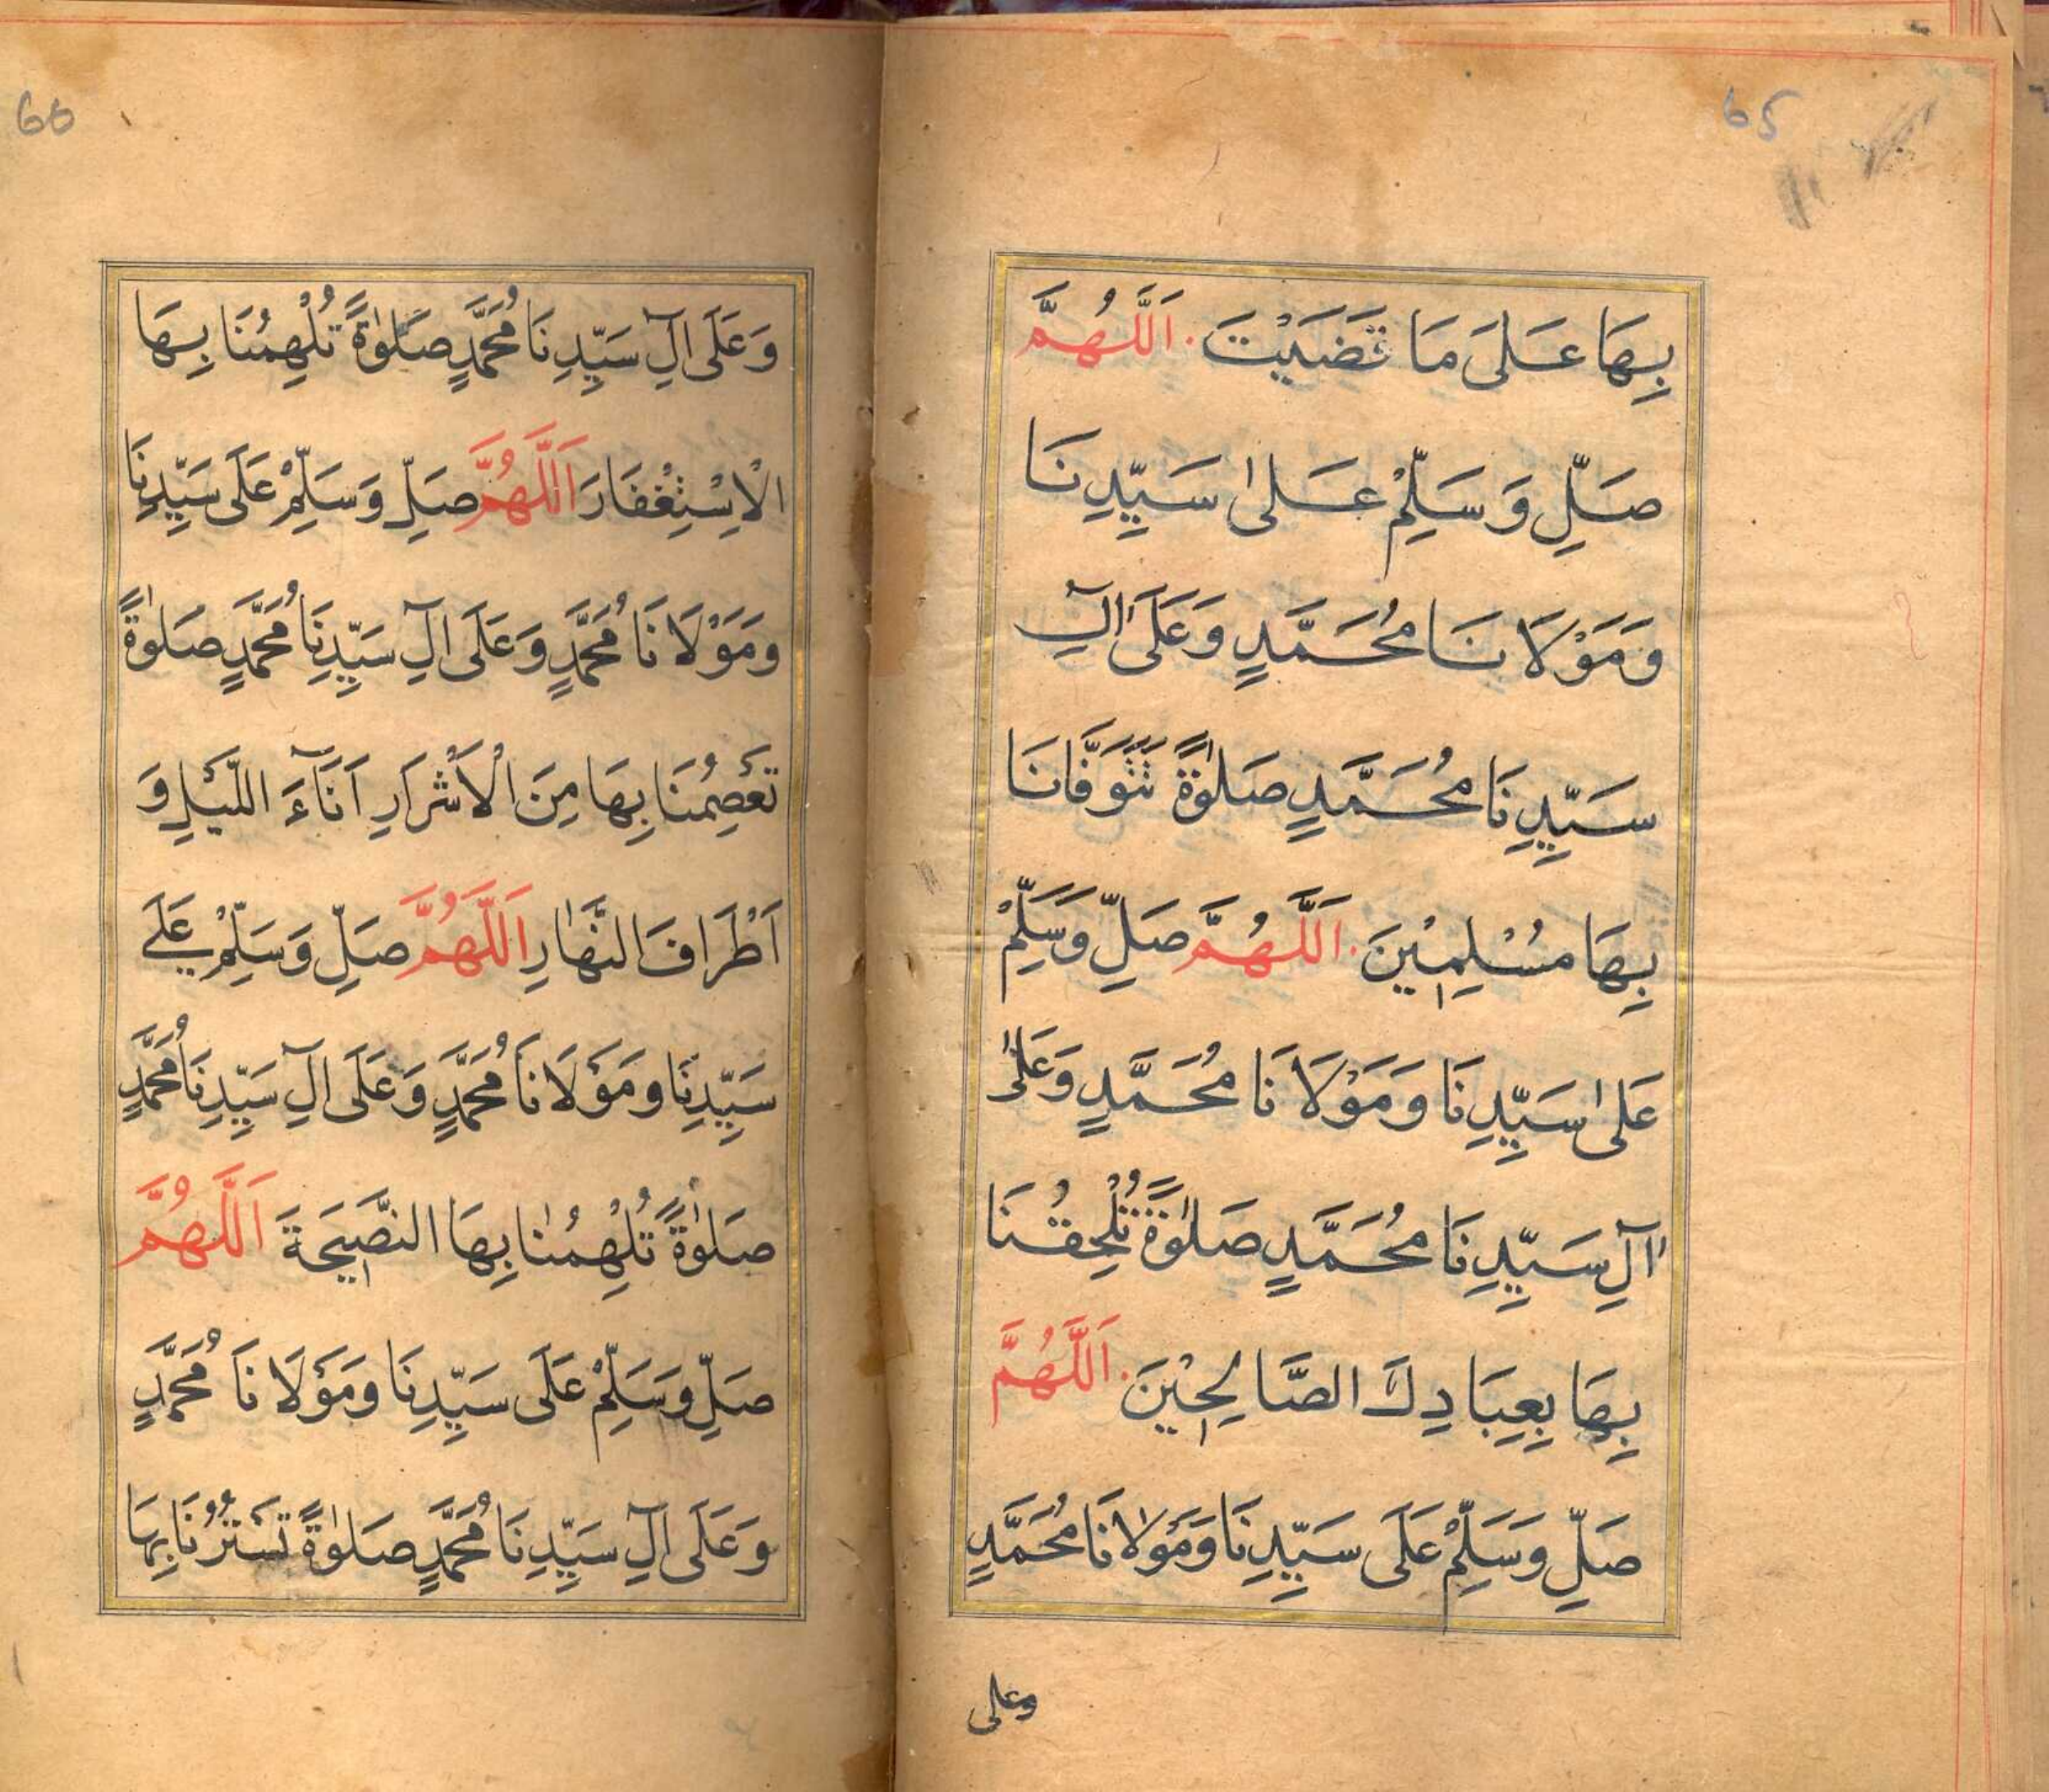 65
بِهَا عَلَىَ مَا قَضَيْتَ. اَللَّهُمَّ
صَلِّ وَسَلِّمْ عَلٰى سَيِّدِنَا
وَمَوْلَانَا مُحَمَّدٍ وَعَلَىٰ اٰلِ
سَيِّدِنَا مُحَمَّدٍ صَلٰوةً تَتَوَفَّانَا
بِهَا مُسْلِمِيْنَ. اَللَّهُمَّ صَلِّ وَسَلِّمْ
عَلٰى سَيِّدِنَا وَمَوْلَانَا مُحَمَّدٍ وَعَلٰى
اٰلِ سَيِّدِنَا مُحَمَّدٍ صَلٰوةً تُلْحِقُنَا
بِهَا بِعِبَادِكَ الصَّالِحِيْنَ. اَللَّهُمَّ
صَلِّ وَسَلِّمْ عَلَى سَيِّدِنَا وَمَوْلَانَا مُحَمَّدٍ
وعلى
66
وَعَلَى اٰلِ سَيِّدِنَا مُحَمَّدٍ صَلٰوةً تُلْهِمُنَا بِهَا
الْاِسْتِغْفَارَ اَللَّهُمَّ صَلِّ وَسَلِّمْ عَلَى سَيِّدِنَا
وَمَوْلَانَا مُحَمَّدٍ وَعَلَى اٰلِ سَيِّدِنَا مُحَمَّدٍ صَلٰوةً
تَعْصِمُنَا بِهَا مِنَ الْاَشْرَارِ اٰنَآءَ اللَّيْلِ وَ
اَطْرَافَ النَّهَارِ اَللَّهُمَّ صَلِّ وَسَلِّمْ عَلَے
سَيِّدِنَا وَمَوْلَانَا مُحَمَّدٍ وَعَلَى اٰلِ سَيِّدِنَا مُحَمَّدٍ
صَلٰوةً تُلْهِمُنَا بِهَا النَّصِيحَةَ اَللَّهُمَّ
صَلِّ وَسَلِّمْ عَلَى سَيِّدِنَا وَمَوْلَانَا مُحَمَّدٍ
وَعَلَى اٰلِ سَيِّدِنَا مُحَمَّدٍ صَلٰوةً تَسْتُرُنَا بِهَا